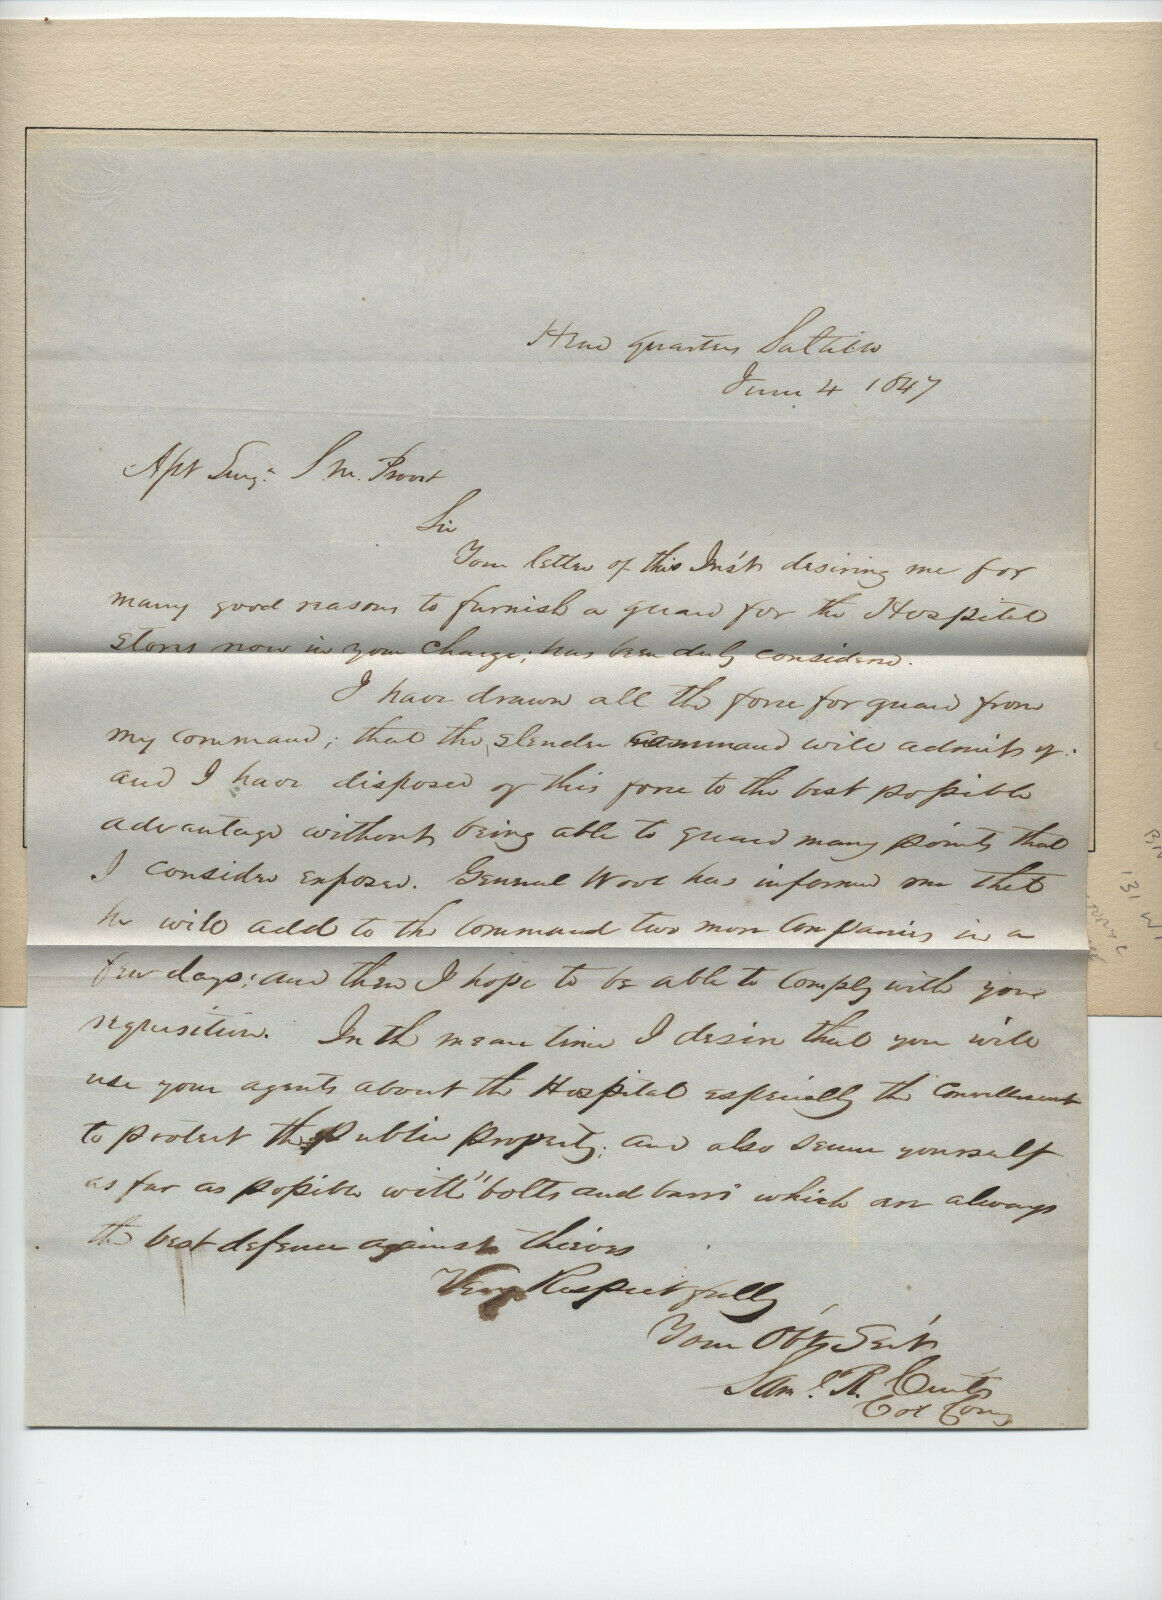 Head Quarters Saltillo
June 4 1847
Asst Surg. Prevost
Sir
Your letter of this Inst desiring me for
many good reasons to furnish a guard for the Hospital
stores now in your charge; has been duly considered.
I have drawn all the force for guard from
my command; that the slender command will admit of:
and I have disposed of this force to the best possible
advantage without being able to guard many points that
I consider exposed. General Wool has informed me that
he will add to the command two more companies in a
few days; and then I hope to be able to comply with your
requisition. In the mean time I desire that you will
use your agents about the Hospital especially the convalescent
to protect the public property; and also secure yourself
as far as possible with "bolts and barrs" which are always
the best defence against thieves
Very Respectfully
Your Obt Servt
Saml. R. Curtis
Col Comg
131 W